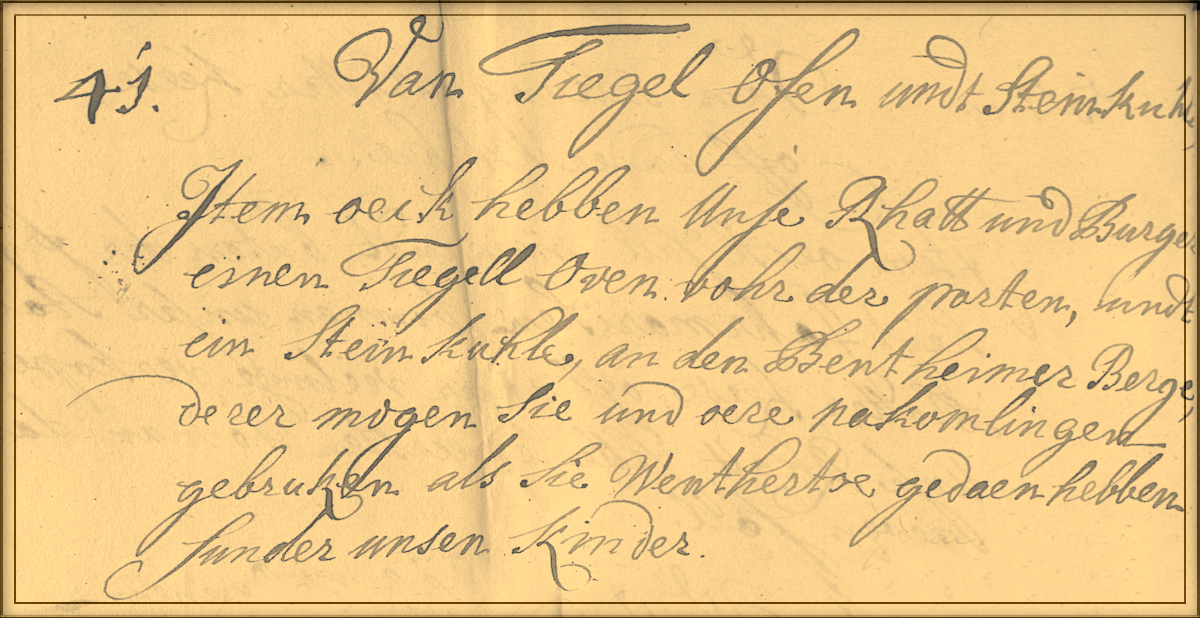 41. Van Tiegel Ofen undt Steinkuhle,
Item oeik hebben Unse Rhatt und Burger
einen Tiegell Oven vohr der porten, undt
ein Steinkuhle, an den Bentheimer Berge,
derer mogen Sie und oere nakomlingen
gebruken als sie Wenthertoe gedaen hebben
sunder unsen Kinder.